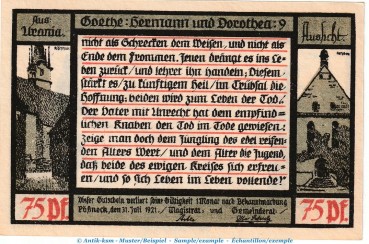 Aus
Urania.
Goethe: Hermann und Dorothea: 9
Aussicht.
nicht als Schrecken dem Weisen, und nicht als
Ende dem Frommen. Jenen drängt es ins Le-
ben zurück, und lehret ihn handeln; Diesem
stärkt es, zu künftigem Heil, im Trübsal die
Hoffnung; beiden wird zum Leben der Tod.
Der Vater mit Unrecht hat dem empfind-
lichen Knaben den Tod im Tode gewiesen:
Zeige man doch dem Jüngling des edel reifen-
den Alters Wert, und dem Alter die Jugend,
daß beide des ewigen Kreises sich erfreu-
en, und so sich Leben im Leben vollende!"
75 Pf.
Dieser Gutschein verliert seine Gültigkeit 1 Monat nach Bekanntmachung
Pößneck, den 31. Juli 1921. Magistrat und Gemeinderat:
75 Pf.
© Antik-ksm - Muster/Beispiel - Sample/exemple - Échantillon/exemplo